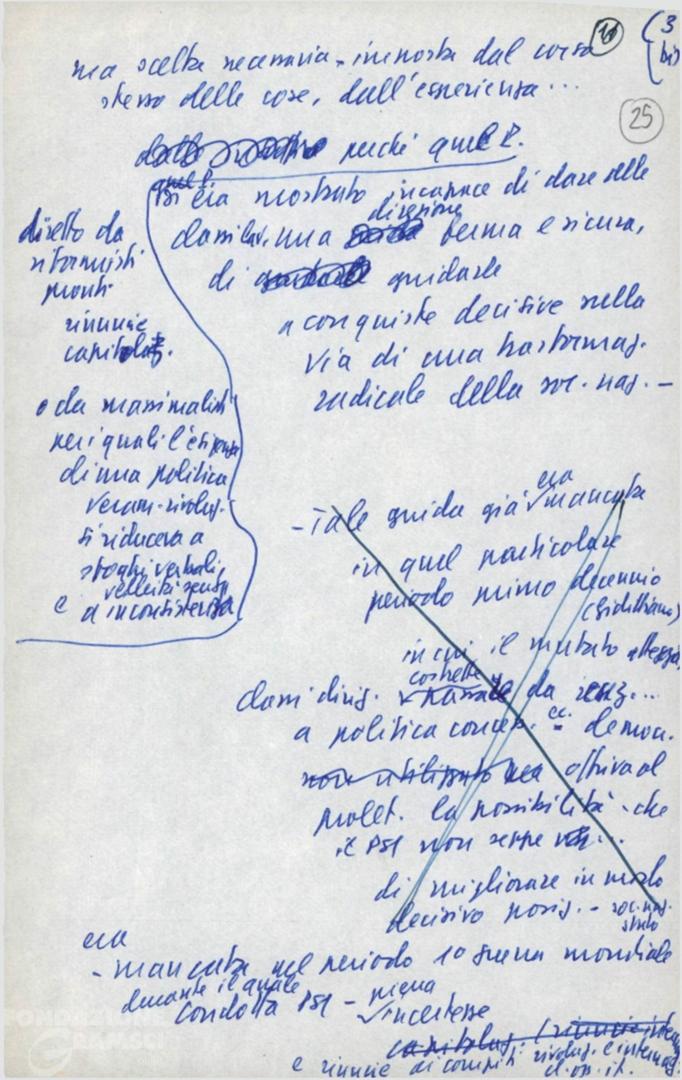 11
(3
bis
25
ma scelta necessaria - imposta dal corso
stesso delle cose, dall'esperienza...
perché quel P.
quel P.
PSI era mostrato incapace di dare alle
classi lav. una direzione ferma e sicura,
di guidarle
a conquiste decisive sulla
via di una trasformaz.
radicale della soc. naz. -
diretto da
riformisti
pronti
rinunie
capitolaz.
o da massimalisti
per i quali l'esigenza
di una politica
veram. rivoluz.
si riduceva a
sfoghi verbali,
velleità senza
e a inconsistenza
- Tale guida già era mancata
in quel particolare
periodo primo decennio
(giolittiano)
in cui il mutato atteggia.
classi dirig. costrette da
a politica concess. ec. democr.
non utilizzato ma offriva al
prolet. la possibilità - che
il PSI non seppe
di migliorare in modo
decisivo posiz. - soc. naz.
stato
era
- mancata nel periodo 1a guerra mondiale
durante il quale
condotta PSI - piena
incertezze
capitolaz. (rinuncie
e rinunie ai compiti rivoluz. e internaz.
FONDAZIONE
GRAMSCI